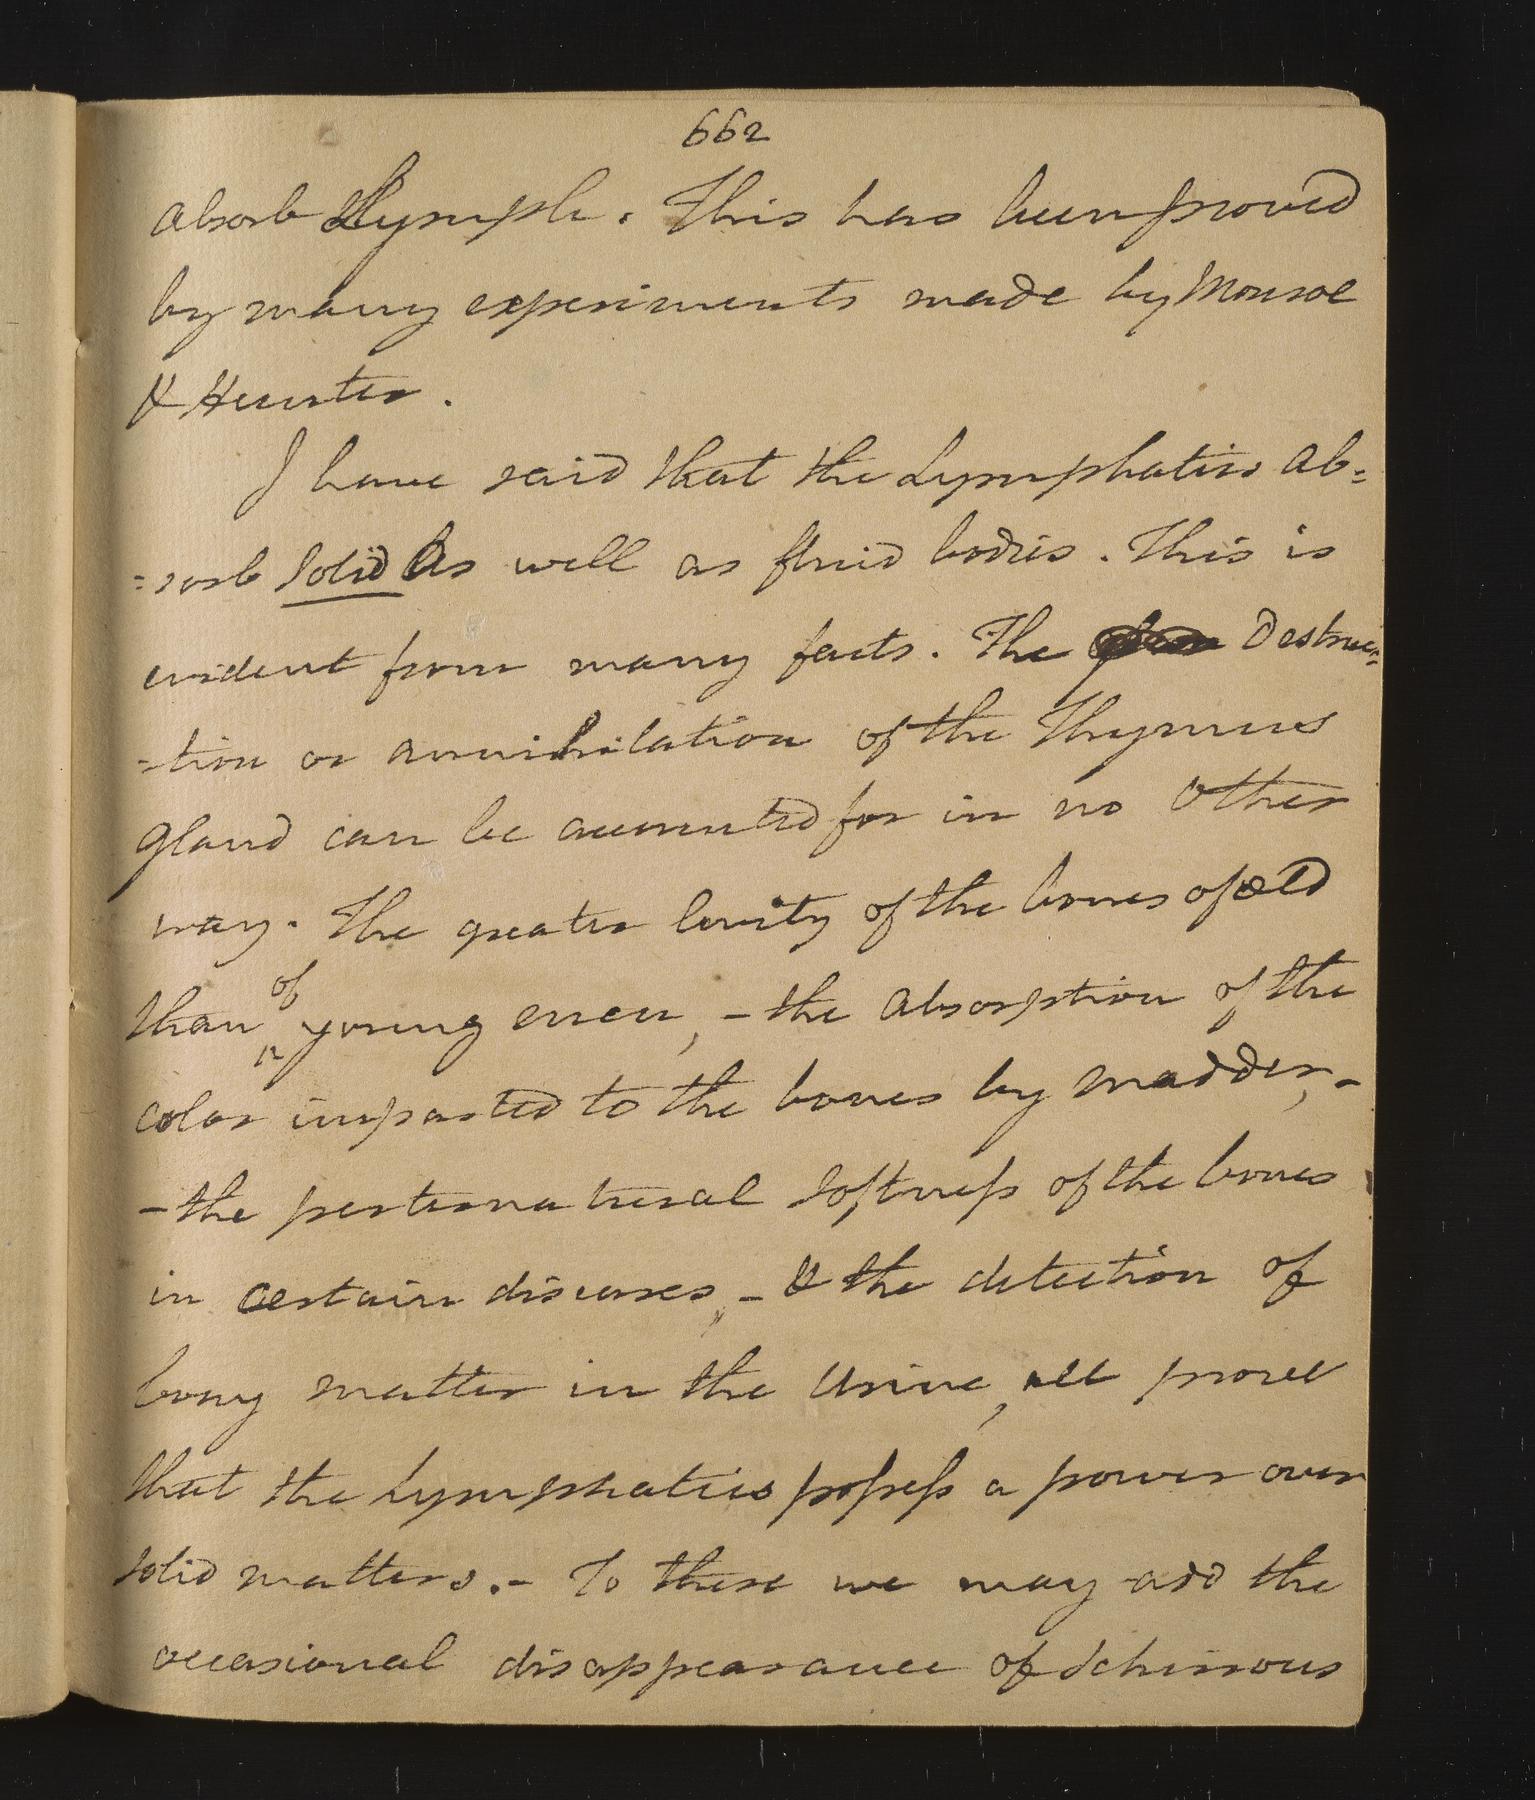 662
absorb Lymph. This has been proved
by many experiments made by Monroe
& Hunter.
I have said that the Lymphatics ab=
=sorb solid as well as fluid bodies. This is
evident from many facts. The Destruc=
-tion or annihilation of the Thymus
gland can be accounted for in no other
way. The greater levity of the bones of old
than of young men, - the absorption of the
color imparted to the bones by madder, -
- the perternatural softness of the bones
in certain diseases, - & the detection of
bony matter in the Urine, all prove
that the Lymphatics possess a power over
solid matters. - To these we may add the
occasional disappearance of Schirrous